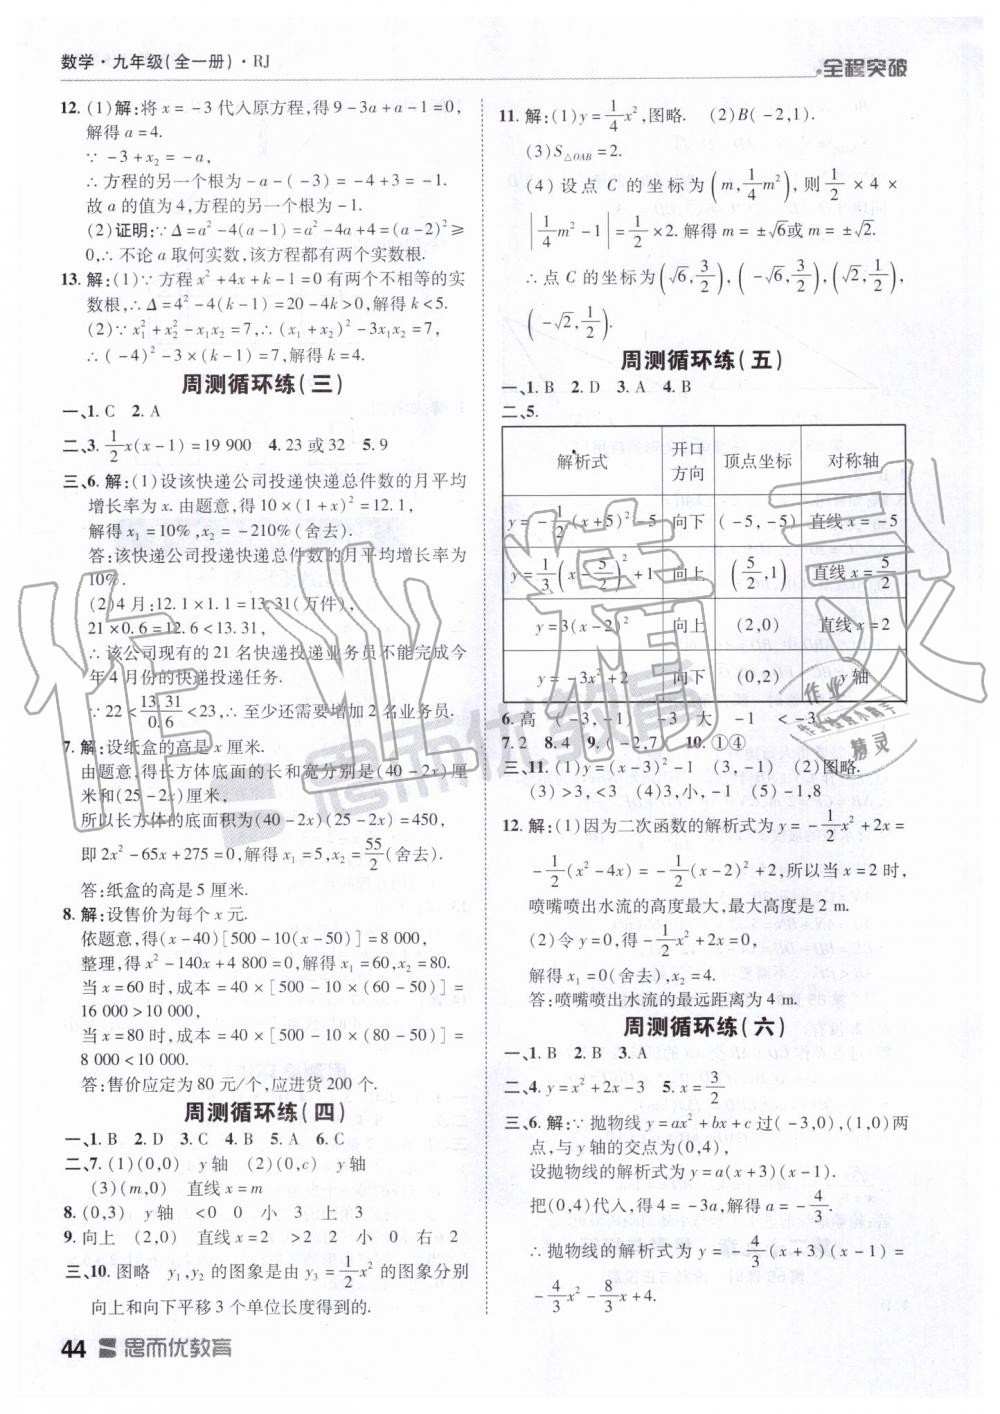 数学·九年级(全一册)·RJ
全程突破
12. (1)解:将 x = -3 代入原方程,得 9-3a+a-1=0,
解得 a=4.
∵ -3+x₂=-a,
∴ 方程的另一个根为 -a-(-3)=-4+3=-1.
故 a 的值为 4,方程的另一个根为 -1.
(2)证明:∵Δ=a²-4(a-1)=a²-4a+4=(a-2)²≥
0,∴ 不论 a 取何实数,该方程都有两个实数根.
13. 解:(1)∵ 方程 x²+4x+k-1=0 有两个不相等的实
数根,∴Δ=4²-4(k-1)=20-4k>0,解得 k<5.
(2)∵x₁²+x₂²-x₁x₂=7,∴(x₁+x₂)²-3x₁x₂=7,
∴(-4)²-3×(k-1)=7,解得 k=4.
周测循环练(三)
一、1. C 2. A
二、3. 1/2 x(x-1)=19 900 4. 23 或 32 5. 9
三、6. 解:(1)设该快递公司投递快递总件数的月平均
增长率为 x. 由题意,得 10(1+x)²=12.1,
解得 x₁=10%,x₂=-210%(舍去).
答:该快递公司投递快递总件数的月平均增长率为
10%.
(2)4 月:12.1×1.1=13.31(万件),
21×0.6=12.6<13.31,
∴ 该公司现有的 21 名快递投递业务员不能完成今
年 4 月份的快递投递任务.
∵22<13.31/0.6<23,∴ 至少还需要增加 2 名业务员.
7. 解:设纸盒的高是 x 厘米.
由题意,得长方体底面的长和宽分别是(40-2x)厘
米和(25-2x)厘米,
所以长方体的底面积为(40-2x)(25-2x)=450,
即 2x²-65x+275=0,解得 x₁=5,x₂=55/2(舍去).
答:纸盒的高是 5 厘米.
8. 解:设售价为每个 x 元.
依题意,得(x-40)[500-10(x-50)]=8 000,
整理,得 x²-140x+4 800=0,解得 x₁=60,x₂=80.
当 x=60 时,成本=40×[500-10×(60-50)]=
16 000>10 000,
当 x=80 时,成本=40×[500-10×(80-50)]=
8 000<10 000.
答:售价应定为 80 元/个,应进货 200 个.
周测循环练(四)
一、1. B 2. D 3. C 4. B 5. A 6. C
二、7. (1)(0,0) y 轴 (2)(0,c) y 轴
(3)(m,0) 直线 x=m
8. (0,3) y 轴 <0 0 小 3 上 3
9. 向上 (2,0) 直线 x=2 >2 2 小 0 右 2
三、10. 图略 y₁,y₂ 的图象是由 y₃=1/2 x² 的图象分别
向上和向下平移 3 个单位长度得到的.
44 思而优教育
11. 解:(1)y=1/4 x²,图略. (2)B(-2,1).
(3)S△OAB=2.
(4)设点 C 的坐标为(m,1/4 m²),则 1/2×4×
|1/4 m²-1|=1/2×2. 解得 m=±√6或 m=±√2.
∴ 点 C 的坐标为(√6,3/2),(-√6,3/2),(√2,1/2),
(-√2,1/2).
周测循环练(五)
一、1. B 2. D 3. A 4. B
二、5.
解析式 开口方向 顶点坐标 对称轴
y=-1/2(x+5)²-5 向下 (-5,-5) 直线 x=-5
y=1/3(x-5/2)²+1 向上 (5/2,1) 直线 x=5/2
y=3(x-2)² 向上 (2,0) 直线 x=2
y=-3x²+2 向下 (0,2) y 轴
6. 高 (-3,-1) -3 大 -1 <-3
7. 2 8. 4 9. (-2,7) 10. ①④
三、11. (1)y=(x-3)²-1 (3,-1) (2)图略.
(3)>3,<3 (4)3,小,-1 (5)-1,8
12. 解:(1)因为二次函数的解析式为 y=-1/2 x²+2x=
-1/2(x²-4x)=-1/2(x-2)²+2,所以当 x=2 时,
喷嘴喷出水流的高度最大,最大高度是 2 m.
(2)令 y=0,得-1/2 x²+2x=0,
解得 x₁=0(舍去),x₂=4.
答:喷嘴喷出水流的最远距离为 4 m.
周测循环练(六)
一、1. B 2. B 3. A
二、4. y=x²+2x-3 5. x=3/2
三、6. 解:∵ 抛物线 y=ax²+bx+c 过(-3,0),(1,0)两
点,与 y 轴的交点为(0,4),
设抛物线的解析式为 y=a(x+3)(x-1).
把(0,4)代入,得 4=-3a,解得 a=-4/3.
∴ 抛物线的解析式为 y=-4/3(x+3)(x-1)=
-4/3 x²-8/3 x+4.
作业精灵
思而优教育